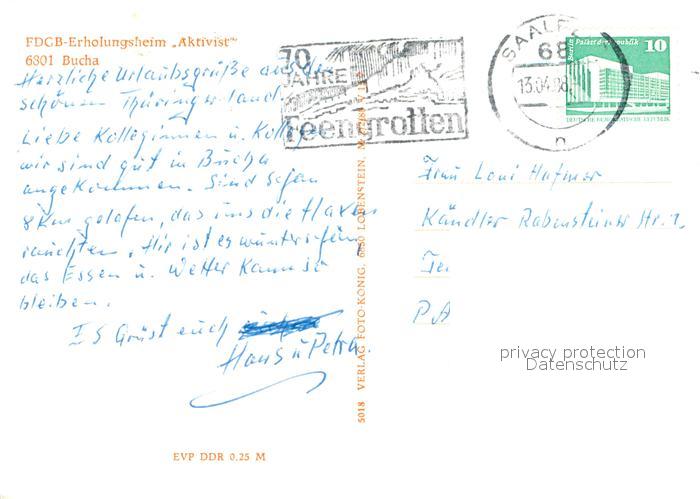 FDGB-Erholungsheim „Aktivist"
6801 Bucha
Herzliche Urlaubsgrüße aus dem
schönen Thüringerland
Liebe Kolleginnen u. Kollegen
wir sind gut in Bucha
angekommen. Sind schon
8 km gelofen, das uns die Haxen
rauchten. Hir ist es wunterschön
das Essen u. Wetter kann so
bleiben.
Es Grüst euch
Hans u Petra.
70
JAHRE
Feengrotten
SAALFELD
68
13.04.88
n
Berlin Palast der Republik 10
DEUTSCHE DEMOKRATISCHE REPUBLIK
Frau Loni Hafner
Kändler Rabensteiner Str. 1
PA
5018 VERLAG FOTO-KÖNIG, 6850 LOBENSTEIN,
EVP DDR 0.25 M
privacy protection
Datenschutz